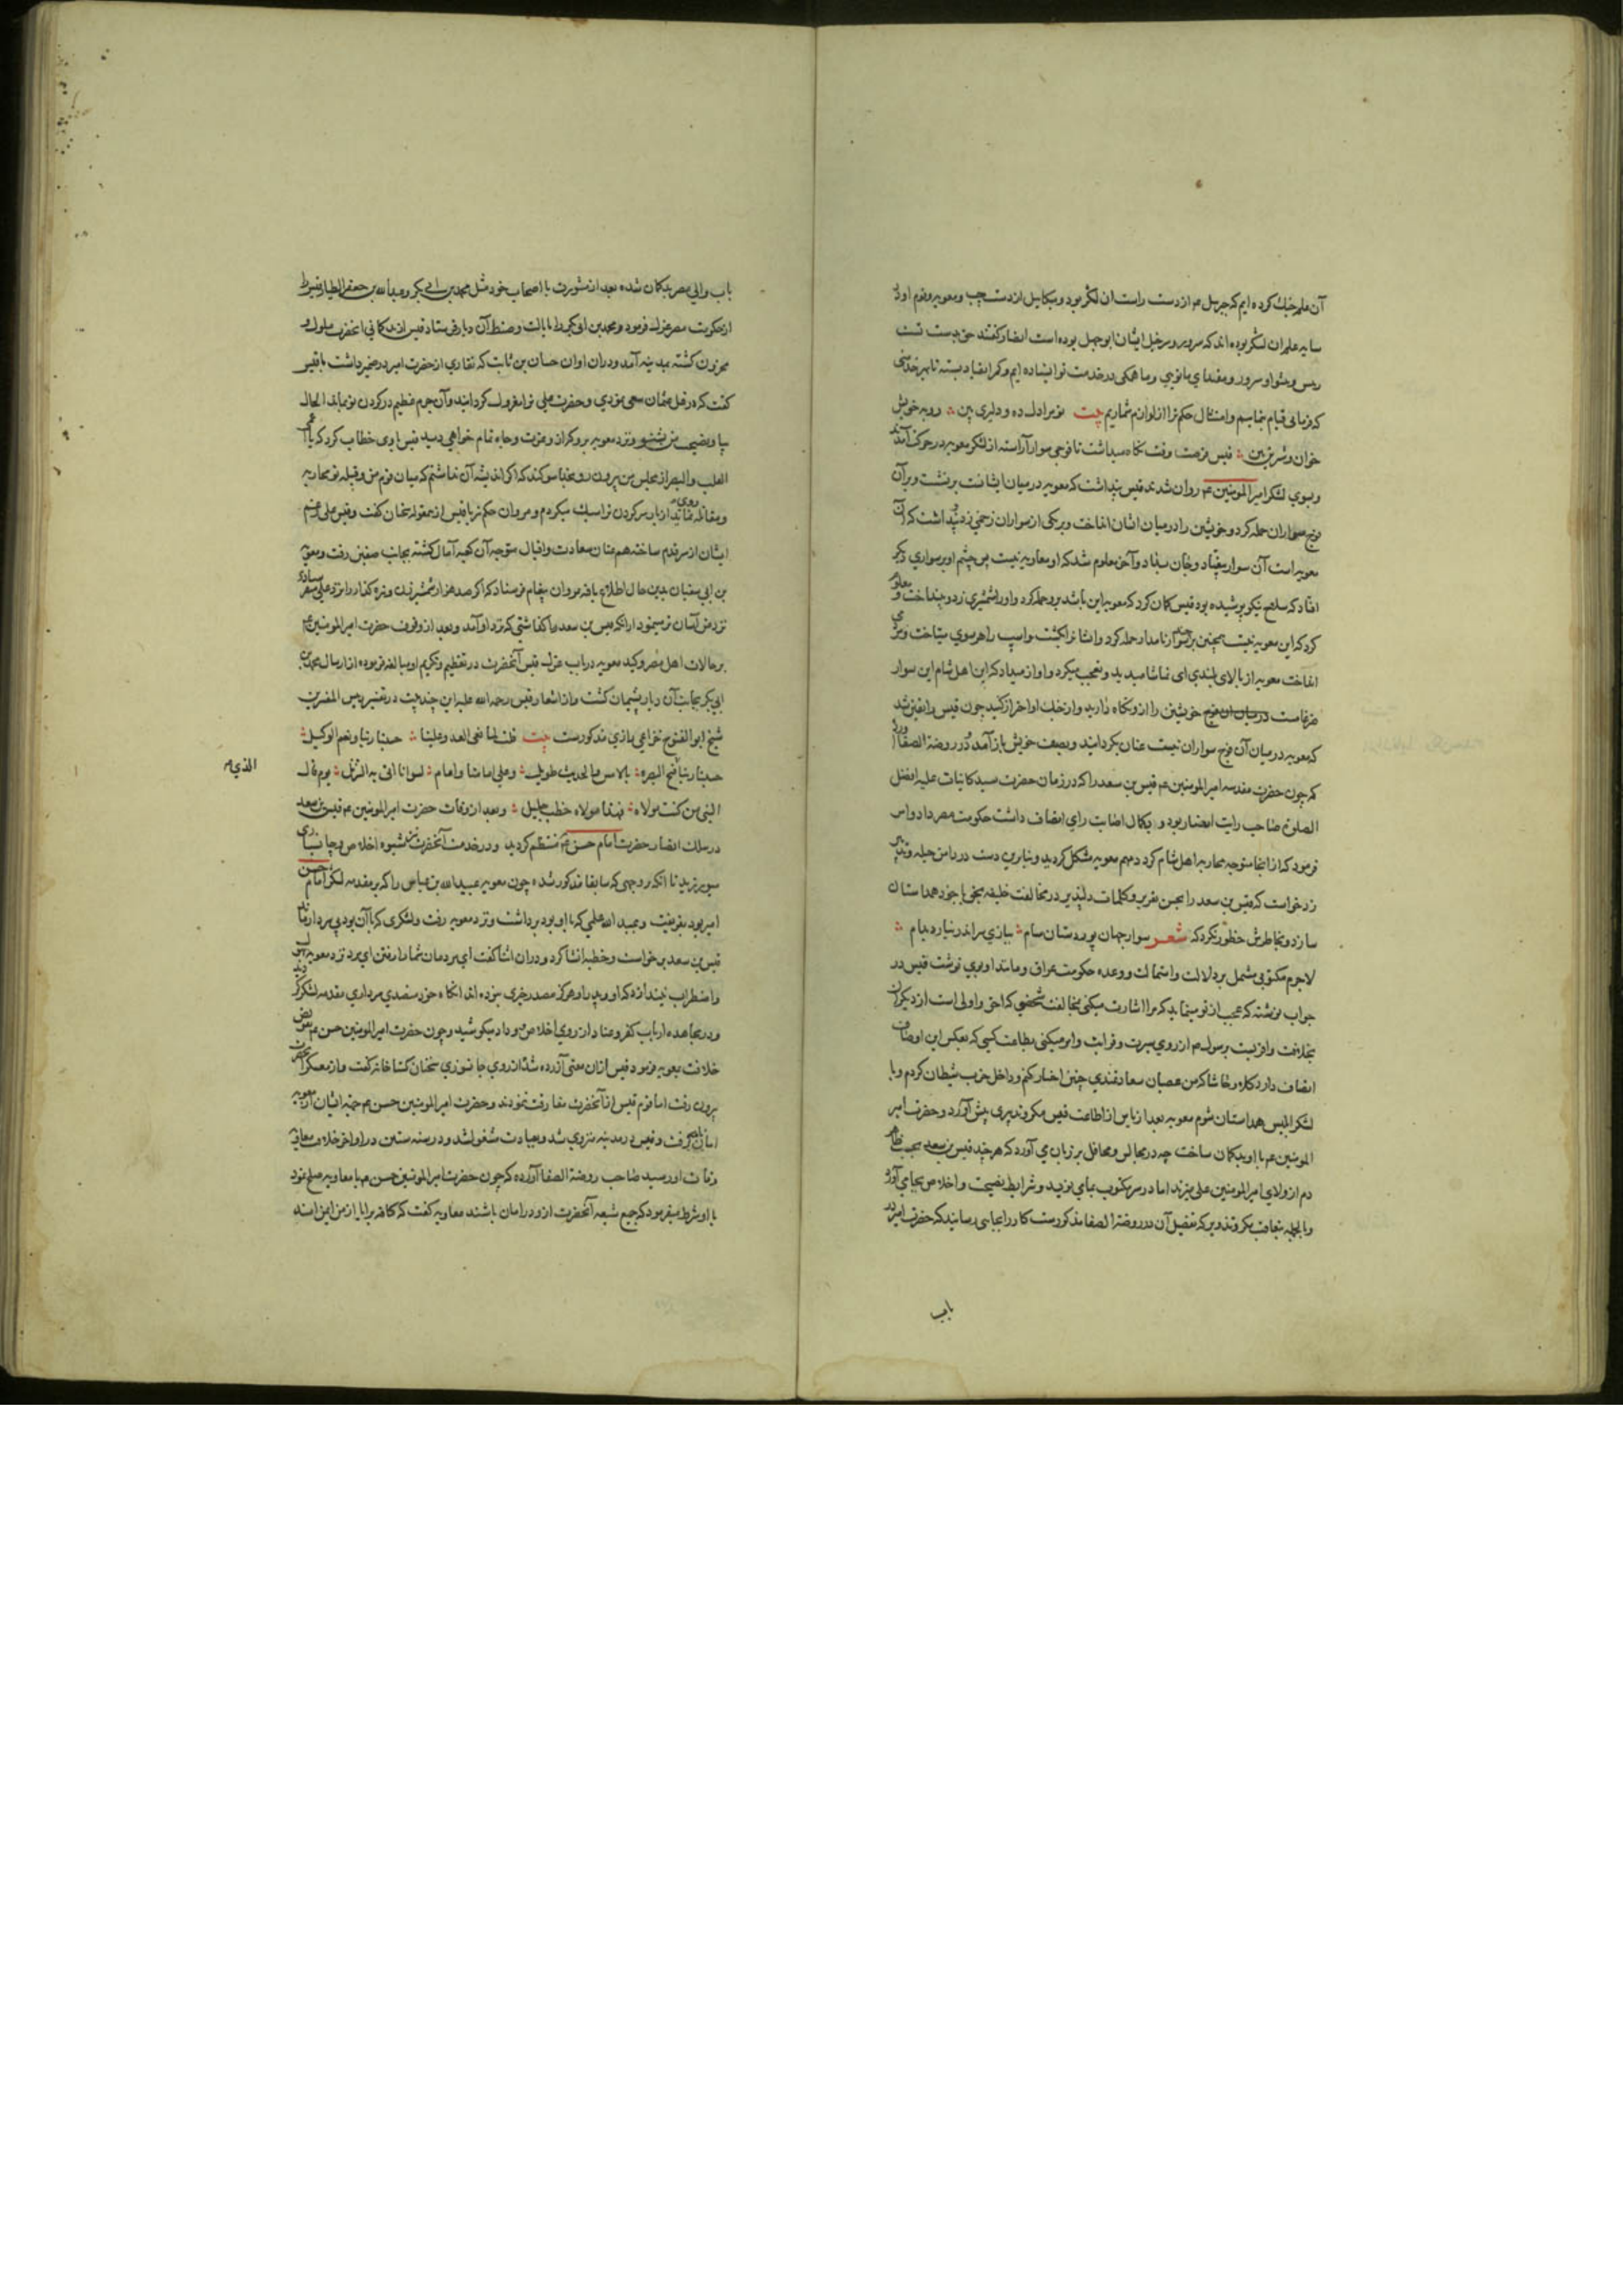 آن علم جنگ کرده ایم که جبرئیل عم از دست راست آن لشکر بود و میکائیل از دست چپ و معویه و قوم او در
سایه علم آن لشکر بوده اند که سرور و سرخیل ایشان ابوجهل بوده است انصار گفتند حق بدست تست
رئیس و پیشوا و سرور و مقتدای ما تویی و ما همگی در خدمت تو ایستاده ایم و کمر انقیاد بسته تا بهر خدمتی
که فرمایی قیام نماییم و امتثال حکم ترا از لوازم شماریم بیت تو مرا دل ده و دلیری بین ؞ روبه خویش
خوان و شیری بین ؞ قیس فرصت وقت نگاه میداشت تا فوجی سوار آراسته از لشکر معویه در حرکت آمدند
و بسوی لشکر امیر المومنین عم روان شدند قیس پنداشت که معویه در میان ایشانست برنشست و بر آن
فوج سواران حمله کرد و خویشتن را در میان ایشان انداخت و بر یکی از سواران زخمی زد و پنداشت که آن
معویه است آن سوار بیفتاد و جان بداد و آخر معلوم شد که او معاویه نیست پس چشم او بر سواری دیگر
افتاد که سلاح نیکو پوشیده بود قیس گمان کرد که معویه این باشد برو حمله کرد و او را شمشیری زد و بینداخت و معلوم
کرد که این معویه نیست همچنین بر چند سوار نامدار حمله کرد و ایشانرا بکشت و اسپ را هر سوی میتاخت و مرد می
انداخت معویه از بالای بلندی ای تماشا میدید و تعجب میکرد و آواز میداد که این اهل شام این سوار
ضرغامست در میان این فوج خویشتن را ازو نگاه دارید و از جنگ او احتراز کنید چون قیس را یقین شد
که معویه در میان آن فوج سواران نیست عنان بگردانید و بصف خویش باز آمد و در روضة الصفا آورده
که چون حضرت مقدسه امیر المومنین عم قیس بن سعد را که در زمان حضرت سید کاینات علیه افضل
الصلوة صاحب رایت انصار بود و بکمال اصابت رای اتصاف داشت حکومت مصر داد و امر
فرمود که از آنجا متوجه محاربه اهل شام گردد مهم معویه مشکل گردید و بنابرین دست در دامن حیله و تدبیر
زد خواست که قیس بن سعد را بحسن تقریر و کلمات دلپذیر در مخالفت خلیفه بحق با خود همداستان
سازد و بخاطرش خطور نکرد که شعر سوار جهان پور دستان سام ؞ ببازی سر اندر نیارد بدام ؞
لاجرم مکتوبی مشتمل بر دلالت و استمالت و وعده حکومت عراق و مانند او بوی نوشت قیس در
جواب نوشته که عجب از تو مینماید که مرا اشارت میکنی بمخالفت شخصی که احق و اولی است از دیگران
بخلافت و اقربست برسول عم از روی سیرت و قرابت و امر میکنی بطاعت کسی که بعکس این اوصاف
اتصاف دارد کلا و حاشا که من عصیان سعادتمندی چنین اختیار کنم و داخل حزب شیطان گردم و با
لشکر ابلیس همداستان شوم معویه بعد از یاس از اطاعت قیس مکر و تدبیری پیش آورد و حضرت امیر
المومنین عم با او بدگمان ساخت چه در مجالس و محافل بر زبان می آورد که هر چند قیس بن سعد بحسب ظاهر
دم از ولای امیر المومنین علی میزند اما در سر مکتوب بمای نویسد و شرایط نصیحت و اخلاص بجای می آورد
و بالجمله بتعاقب مکر و تزویر که تفصیل آن در روضة الصفا مذکورست کار را بجایی رسانید که حضرت امیر در
باب
باب والی مصر بدگمان شده بعد از مشورت با اصحاب خود مثل محمد بن ابی بکر و عبدالله بن جعفر الطیار قیس را
از حکومت مصر عزل فرمود و محمد بن ابی بکر را بایالت و ضبط آن دیار فرستاد قیس از بدگمانی آنحضرت ملول و
محزون گشته بمدینه آمد و در آن اوان حسان بن ثابت که نقاری از حضرت امیر در ضمیر داشت با قیس
گفت که در قتل عثمان سعی نمودی و حضرت علی ترا معزول گردانید و آن جرم عظیم در گردن تو بماند الحال
بیا و نصیحت من بشنو و نزد معویه برو که از وعزت و جاه تمام خواهی دید قیس با وی خطاب کرد که یا اعمی
القلب والبصر از مجلس من بیرون رو بخدا سوگند که اگر اندیشه آن نداشتم که میان قوم من و قبیله تو محاربه
و مقاتله روی نماید از بار سر گردن ترا سبک میکردم و مروان حکم نیز با قیس ازین مقوله سخنان گفت و قیس علی رغم
ایشان از سر قدم ساخته هم عنان سعادت و اقبال متوجه آن کعبه آمال گشته بجانب صفین رفت و معویه
بن ابی سفیان بدین حال اطلاع یافته بمروان پیغام فرستاد که اگر صد هزار شمشیرزن و نیزه گذار را نزد علی میفرستادی
نزد من آسان تر مینمود از آنکه قیس بن سعد را گذاشتی که نزد او آمد و بعد از وقوف حضرت امیر المومنین عم
بر حالات اهل مصر و کید معویه در باب عزل قیس آنحضرت در تعظیم و تکریم او مبالغه فرموده از ارسال محمد بن
ابی بکر بجانب آن دیار پشیمان گشت و از اشعار قیس رحمه الله علیه این چند بیت در تفسیر رئیس المفسرین
شیخ ابو الفتوح خزاعی رازی مذکورست بیت قلت لما بغی العدو علینا ؞ حسبنا ربنا و نعم الوکیل ؞
حسبنا ربنا الذی فتح البصره ؞ بالامس والحدیث طویل ؞ وعلی امامنا وامام ؞ لسوانا اتی به التنزیل ؞ یوم قال
الذی
النبی من کنت مولاه ؞ فهذا مولاه خطب جلیل ؞ و بعد از وفات حضرت امیر المومنین عم قیس بن سعد
در سلک انصار حضرت امام حسن عم منتظم گردید و در خدمت آنحضرت نیز شیوه اخلاص و جانسپاری
میورزید تا آنکه بروجهی که سابقا مذکور شده چون معویه عبید الله بن عباس را که بر مقدمه لشکر امام حسن
امیر بود بفریفت و عبید الله علمی که با او بود برداشت و نزد معویه رفت و لشکری که با آن بود بی سردار ماند
قیس بن سعد برخاست و خطبه انشا کرد و در آن اثنا گفت ای مردمان شما را رفتن ای مرد نزد معویه
و اضطراب نیندازد که او و پدر او هرگز مصدر خیری نبوده اند آنگاه خود متصدی سرداری مقدمه لشکر گردید
و در مجاهده ارباب کفر و عناد از روی اخلاص و وداد میکوشید و چون حضرت امیر المومنین حسن عم تفویض
خلافت بمعویه فرمود قیس از آن معنی آزرده شد از روی جانسوزی سخنان گستاخانه گفت و از معسکر آنحضرت
بیرون رفت اما قوم قیس از آنحضرت مفارقت ننمودند و حضرت امیر المومنین حسن عم جهة ایشان از معویه
امان گرفت و قیس در مدینه منزوی شد و بعبادت مشغول شد و در سنه ستین در اواخر خلافت معاویه
وفات او رسید صاحب روضة الصفا آورده که چون حضرت امیر المومنین حسن عم با معاویه صلح نمود
با او شرط میفرمود که جمیع شیعه آنحضرت ازو در امان باشند معاویه گفت که کافه برایا از من ایمن اند